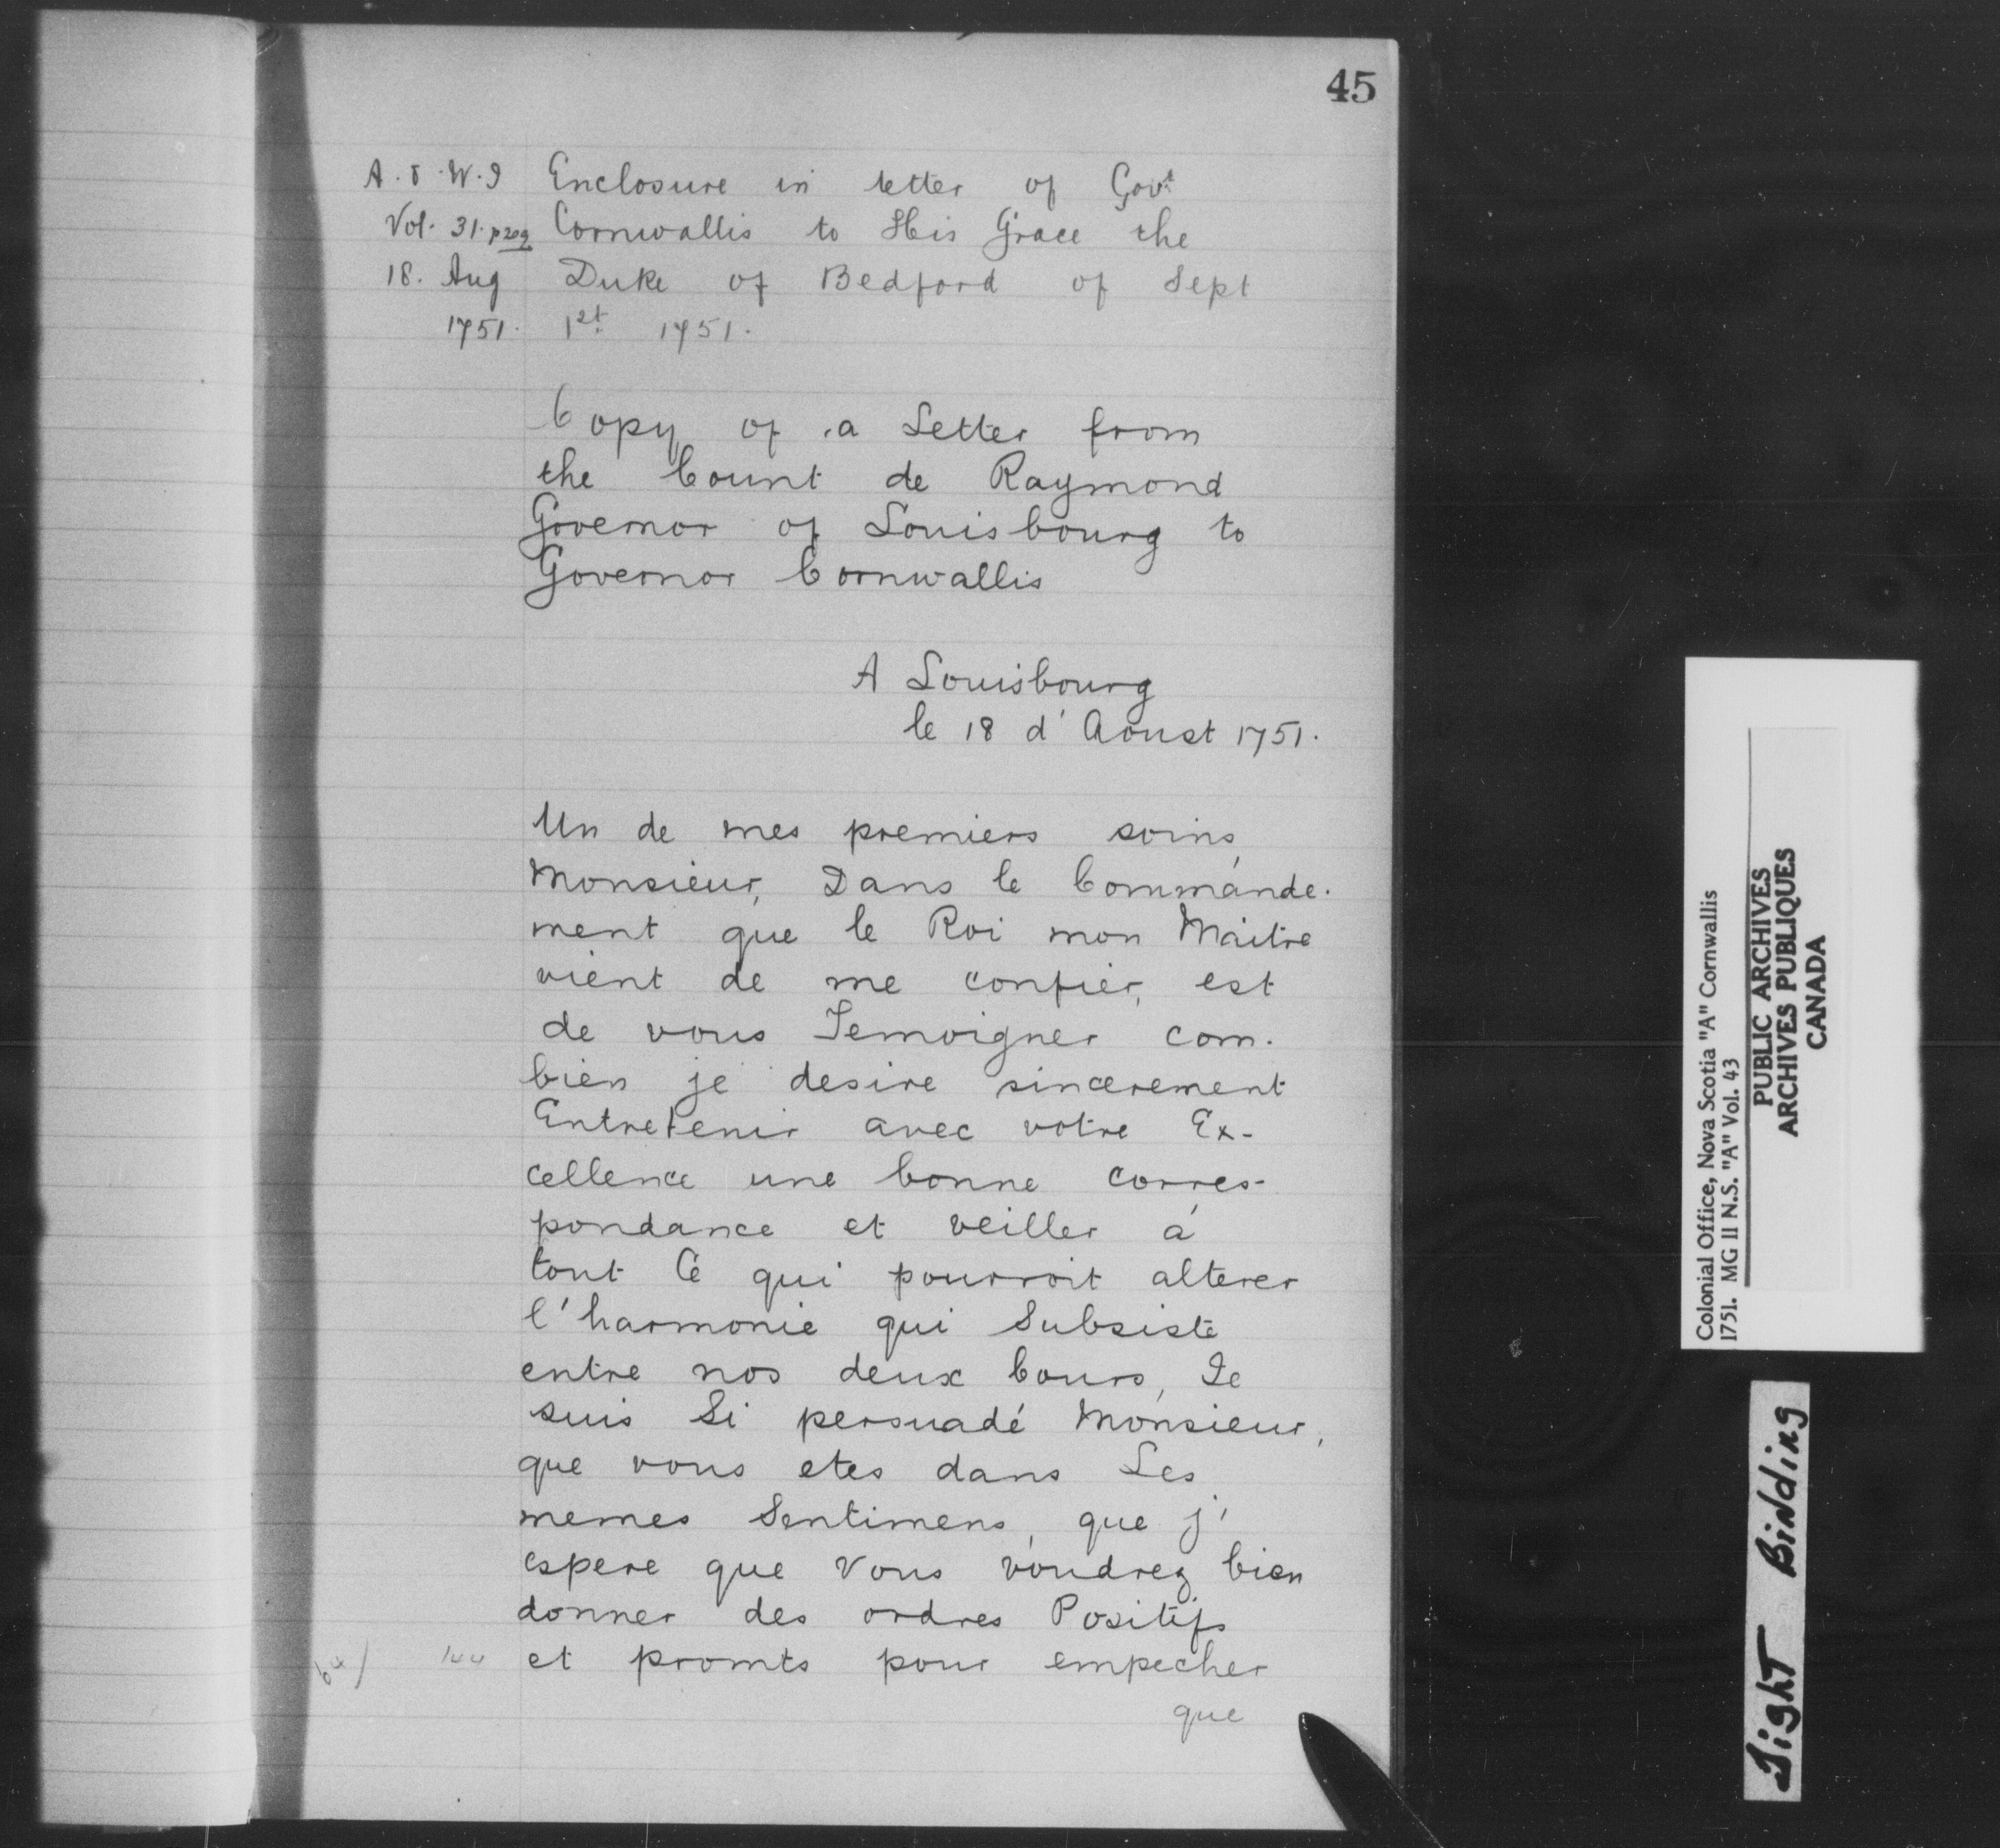 45
A. & W. I
Vol. 31. p 209
18. Aug
1751.
Enclosure in letter of Govt
Cornwallis to His Grace the
Duke of Bedford of Sept
1st 1751.
Copy of a Letter from
the Count de Raymond
Governor of Louisbourg to
Governor Cornwallis
A Louisbourg
le 18 d'Aoust 1751.
Un de mes premiers soins,
Monsieur, Dans le Commande-
ment que le Roi mon Maitre
vient de me confier, est
de vous Temoigner com-
bien je desire sincerement
Entretenir avec votre Ex-
cellence une bonne corres-
pondance et veiller á
tout Cé qui pourroit alterer
l'harmonie qui Subsiste
entre nos deux Cours, Je
suis Si persuadé Monsieur,
que vous etes dans Les
memes Sentimens, que j'
espere que Vous voudrez bien
donner des ordres Positifs
et promts pour empecher
que
64) 144
Colonial Office, Nova Scotia "A" Cornwallis
1751. MG 11 N.S. "A" Vol. 43
PUBLIC ARCHIVES
ARCHIVES PUBLIQUES
CANADA
Tight Binding